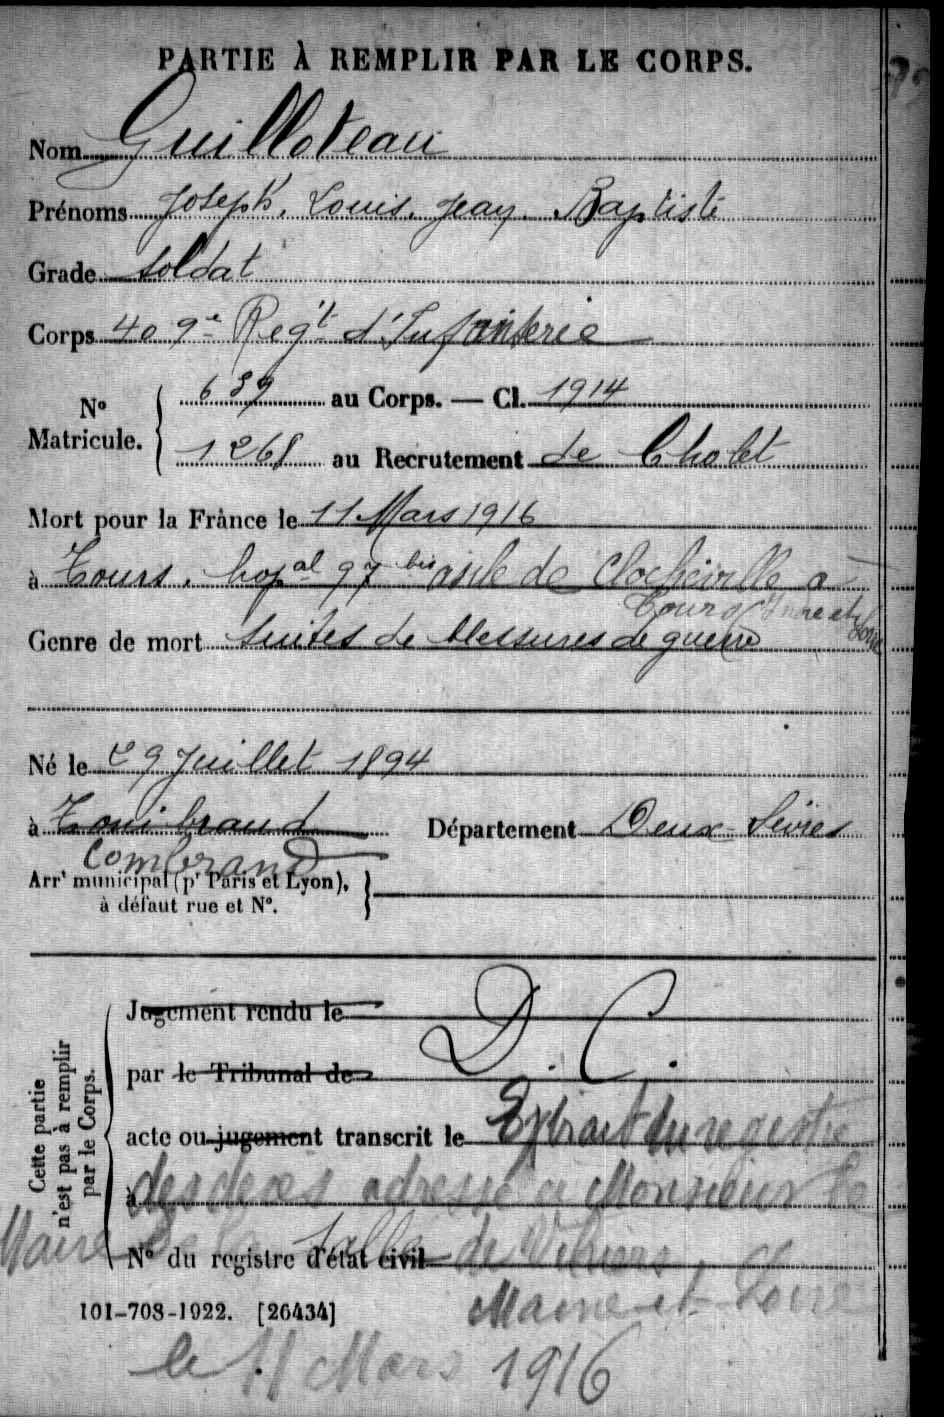 PARTIE À REMPLIR PAR LE CORPS.
Nom Guilloteau
Prénoms Joseph, Louis, Jean, Baptiste
Grade Soldat
Corps 409e Regt d'Infanterie
No Matricule. { 639 au Corps. — Cl. 1914
1268 au Recrutement de Cholet
Mort pour la France le 11 Mars 1916
à Tours, hopal 97 bis asile de Clocheville à
Tours (Indre et Loire
Genre de mort Suites de blessures de guerre
Né le 29 Juillet 1894
à Combraud Département Deux-Sèvres
Combrand
Arrt municipal (pr Paris et Lyon),
à défaut rue et No.
Cette partie
n'est pas à remplir
par le Corps.
Jugement rendu le D. C.
par le Tribunal de
acte ou jugement transcrit le Extrait du registre
à des decès adressé à Monsieur le
Maire de la Salle de Vihiers
No du registre d'état civil
Maine-et-Loire
101-708-1922. [26434]
le 11 Mars 1916